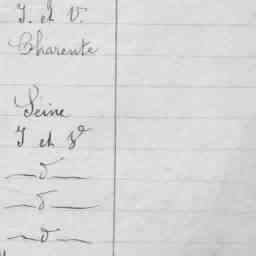 I. et V.
Charente
Seine
I et V
—d°—
—d°—
—d°—